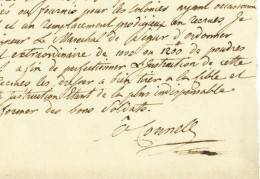 fournis pour les colonies ayant occasionné
et un remplacement prodigieux en recrues, Je
Le Marechal de Segur d'ordonner
extraordinaire de 1000 en 1200 de poudres
afin de perfectionner L'instruction de cette
les defour a bien tirer a la cible et
instruction Etant de la plus indispensable
former des bons Soldats.
O'Connell